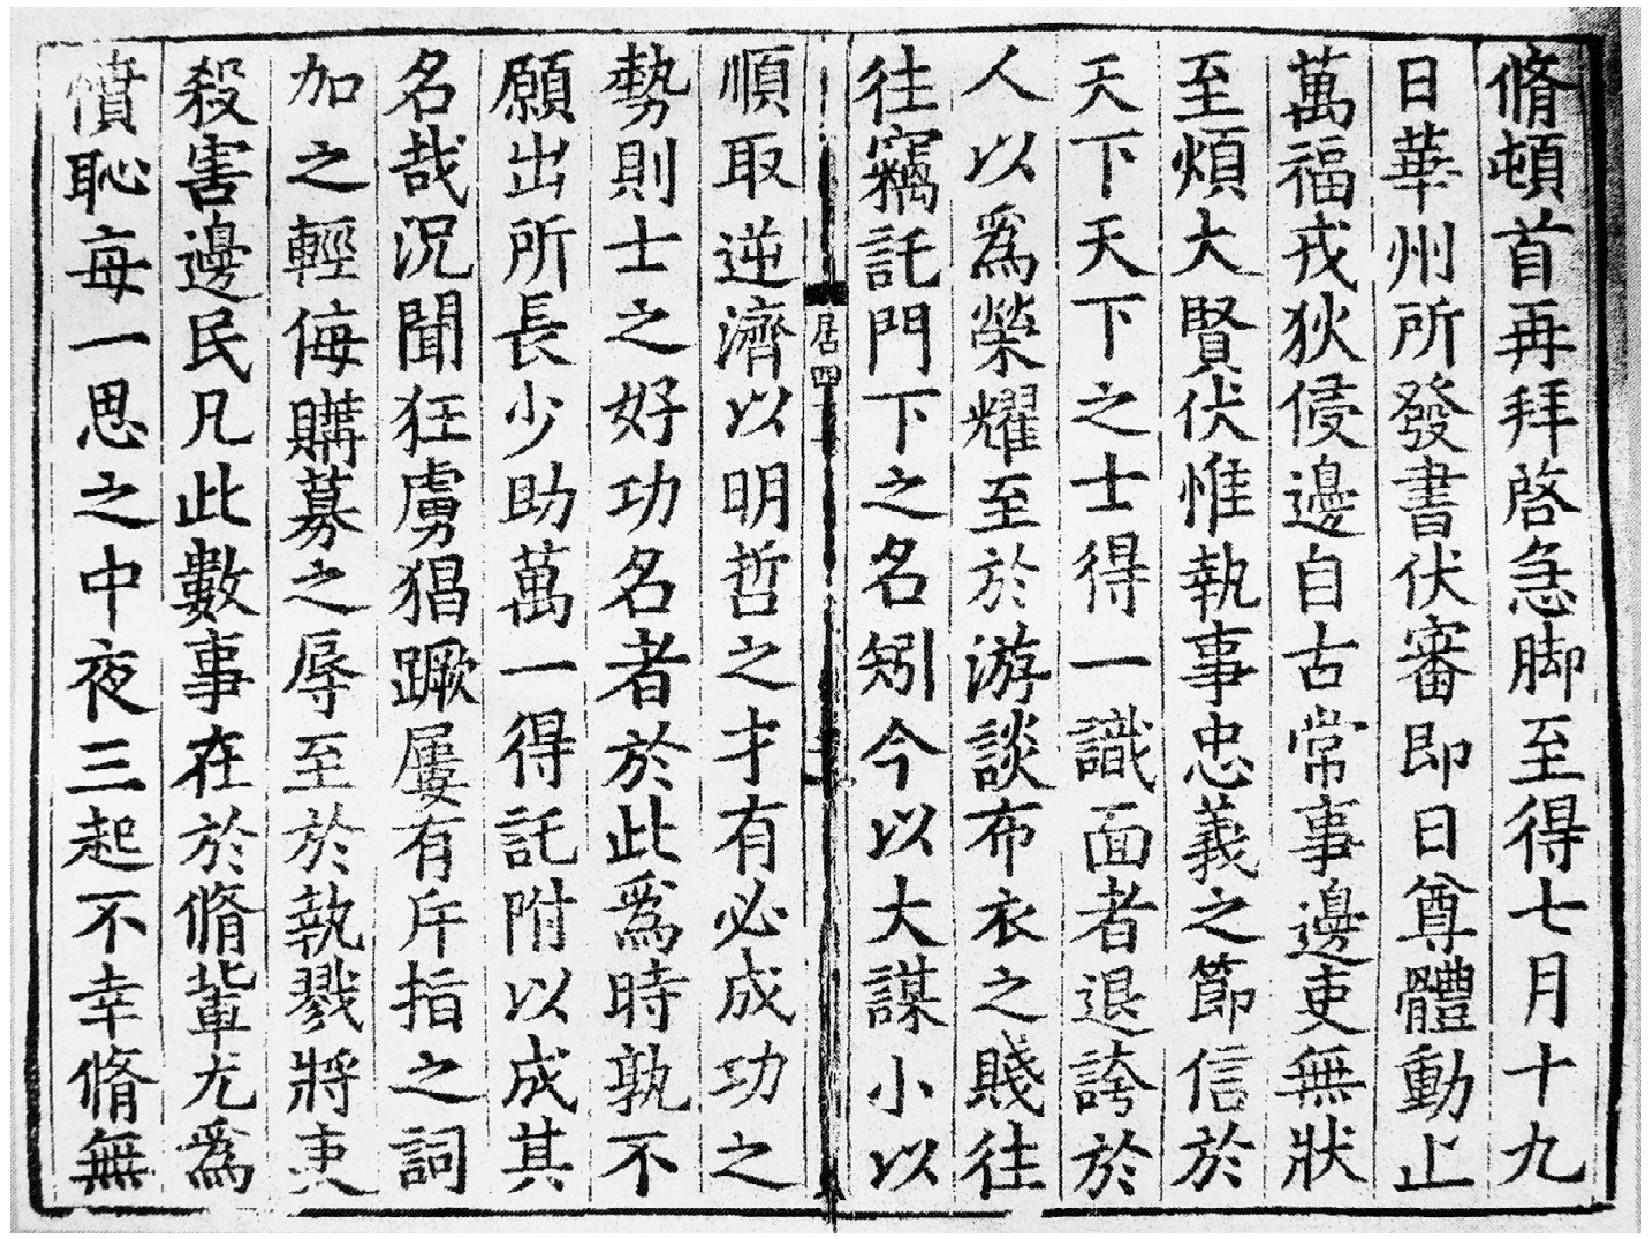 脩頓首再拜啓急脚至得七月十九
日華州所發書伏審即日尊體動止
萬福戎狄侵邊自古常事邊吏無狀
至煩大賢伏惟執事忠義之節信於
天下天下之士得一識面者退誇於
人以為榮耀至於游談布衣之賤往
往竊託門下之名矧今以大謀小以
居四
順取逆濟以明哲之才有必成功之
勢則士之好功名者於此為時孰不
願出所長少助萬一得託附以成其
名哉況聞狂虜猖蹶屢有斥指之詞
加之輕侮購募之辱至於執戮將吏
殺害邊民凡此數事在於脩輩尤為
憤恥每一思之中夜三起不幸脩無